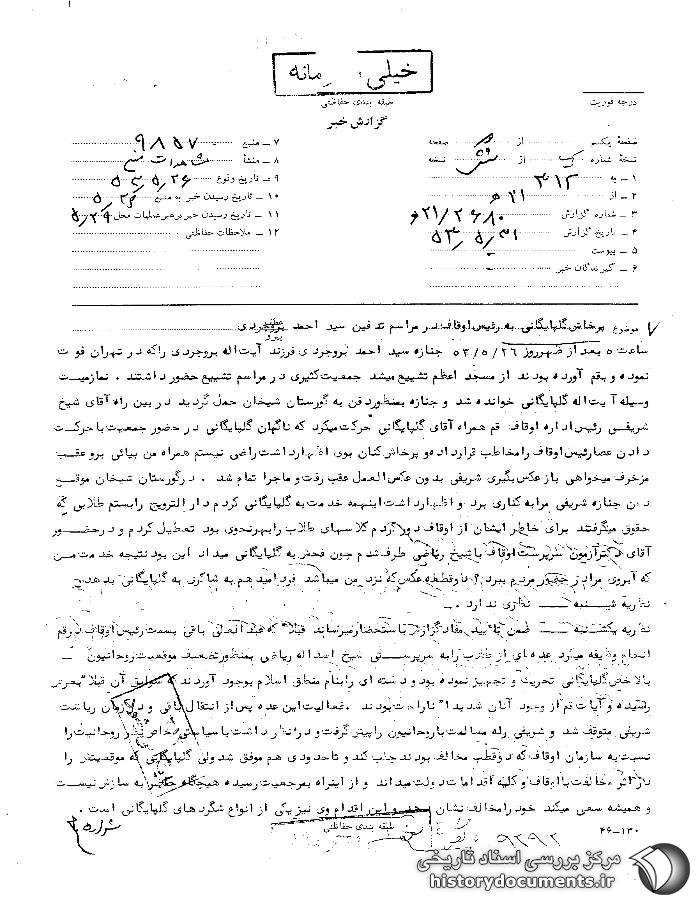 خیلی محرمانه
طبقه بندی حفاظتی
گزارش خبر
درجه فوریت
صفحه یکم از صفحه
نسخه شماره از نسخه
۱ ــ به ۳۱۲
۲ ــ از ۲۱ ه
۳ ــ شماره گزارش ۲۱/۲۶۸۰ ه
۴ ــ تاریخ گزارش ۵۳/۵/۳۱
۵ ــ پیوست
۶ ــ گیرندگان خبر
۷ ــ منبع ۹۸۵۷
۸ ــ منشأ مشاهدات منبع
۹ ــ تاریخ وقوع ۵۳/۵/۲۶
۱۰ ــ تاریخ رسیدن خبر به منبع ۵/۲۶
۱۱ ــ تاریخ رسیدن خبر برهبر عملیات محل ۵/۲۹
۱۲ ــ ملاحظات حفاظتی
موضوع پرخاش گلپایگانی به رئیس اوقاف در مراسم تدفین سید احمد بروجردی
ساعت ۵ بعد از ظهر روز ۵۳/۵/۲۶ جنازه سید احمد بروجردی فرزند آیت اله بروجردی را که در تهران فوت
نموده و بقم آورده بودند از مسجد اعظم تشییع میشد جمعیت کثیری در مراسم تشییع حضور داشتند . نماز میت
وسیله آیت اله گلپایگانی خوانده شد و جنازه بمنظور دفن به گورستان شیخان حمل گردید در بین راه آقای شیخ
شریفی رئیس اداره اوقاف قم همراه آقای گلپایگانی حرکت میکرد که ناگهان گلپایگانی در حضور جمعیت با حرکت
دادن عصا رئیس اوقاف را مخاطب قرار داد و پرخاش کنان بوی اظهار داشت راضی نیستم همراه من بیائی برو عقب
مزخرف میخواهی باز عکس بگیری شریفی بدون عکس العمل عقب رفت و ماجرا تمام شد . در گورستان شیخان موقع
دفن جنازه شریفی مرا به کناری برد و اظهار داشت اینهمه خدمت به گلپایگانی کردم دار الترویج را بستم طلابی که
حقوق میگرفتند برای خاطر ایشان از اوقاف دور کردم کلاسهای طلاب را بهر نحوی بود تعطیل کردم و در حضور
آقای دکتر آزمون سرپرست اوقاف با شیخ ریاضی طرف شدم چون فحش به گلپایگانی میداد این بود نتیجه خدمت من
که آبروی مرا در حضور مردم ببرد ؟ دو قطعه عکس که نزد من میباشد فردا میدهم به شاکری به گلپایگانی بدهد .
نظریه شنبه ــ نظری ندارد .
نظریه یکشنبه ــ ضمن تأیید مفاد گزارش باستحضار میرساند قبلا که عبدالعالی باقی بسمت رئیس اوقاف در قم
انجام وظیفه میکرد عده ای از طلاب را به سرپرستی شیخ اسداله ریاضی بمنظور تضعیف موقعیت روحانیون ــ
بالاخص گلپایگانی تحریک و تجهیز نموده بود و دسته ای را بنام منطق اسلام بوجود آوردند که سوابق آن قبلا بعرض
رسیده و آیات قم از وجود آنان شدیدا ناراحت بودند . فعالیت این عده پس از انتقال باقی و در زمان ریاست
شریفی متوقف شد و شریفی راه مسالمت با روحانیون را پیش گرفت و در نظر داشت با سیاستی خاص نظر روحانیت را
نسبت به سازمان اوقاف که دو قطب مخالف بودند جلب کند و تا حدودی هم موفق شد ولی گلپایگانی که موقعیتش را
در اثر مخالفت با اوقاف و کلیه اقدامات دولت میداند و از اینراه بمرجعیت رسیده هیچگاه حاضر به سازش نیست
و همیشه سعی میکند خود را مخالف نشان دهد و این اقدام وی نیز یکی از انواع شگردهای گلپایگانی است .
طبقه بندی حفاظتی
۴۶ــ۱۳۰
۹۲۹۲
مرکز بررسی اسناد تاریخی
historydocuments.ir